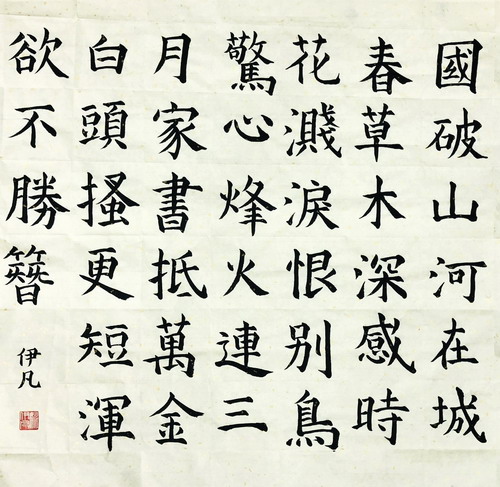 國破山河在城
春草木深感時
花濺淚恨別鳥
驚心烽火連三
月家書抵萬金
白頭搔更短渾
欲不勝簪
伊凡